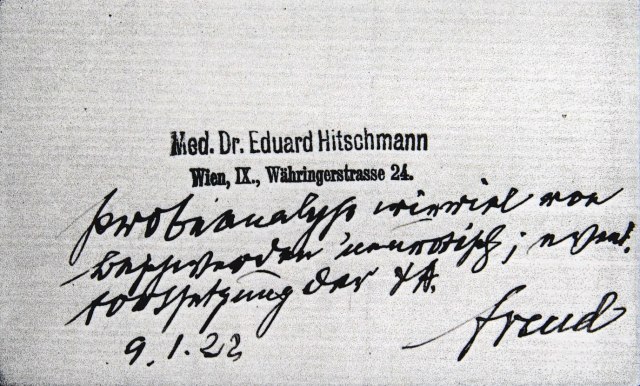 Med. Dr. Eduard Hitschmann
Wien, IX., Währingerstrasse 24.
Probeanalyse wieviel von
Beschwerden neurotisch; event.
Fortsetzung der ΨA.
9.1.22
Freud